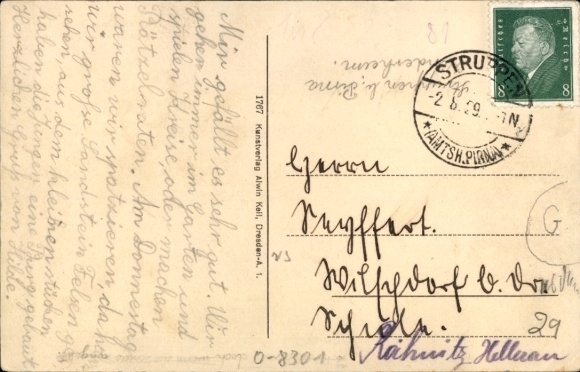 Mir gefällt es sehr gut. Wir
gehen immer im Garten und
spielen Kreis, oder machen
Rätzelraten. Am Donnerstag
waren wir spatzieren da haben
wir große Sandstein Felsen ge-
sehen, aus dem kleinen stückchen
haben die Jungen eine Burg gebaut
Herzlichen Gruß von Hilde.
Struppen b. Pirna
Kinderheim.
1767 Kunstverlag Alwin Keil, Dresden-A. 1.
STRUPPEN
-2.8.29.
N
(AMTSH. PIRNA)
Deutsches Reich
8 8
Herrn
Seyffert.
Wilschdorf b. Dr.
Schule.
Rähnitz Hellerau
G
29
0-8301